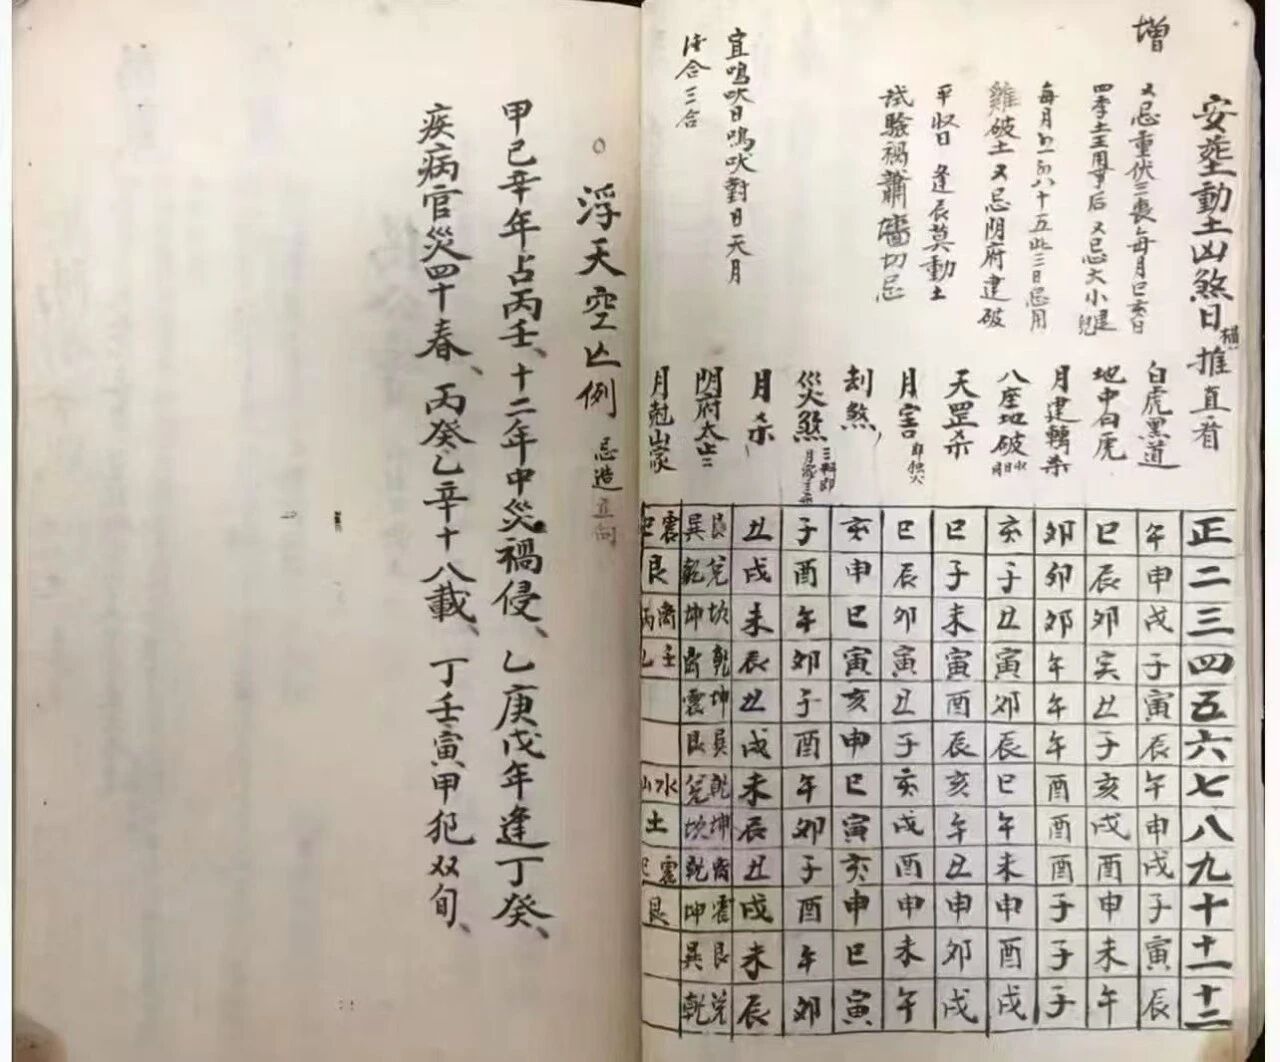 增
安塟動土凶煞日推直看
横
又忌重伏三喪每月巳亥日
四季土王用事后又忌大小建
每月初一初八十五此三日忌用
雞破土又忌阴府建破
平收日逢辰莫動土
試驗禍蕭墻切忌
宜鳴吠日鳴吠對日天月
合三合
白虎黑道
地中白虎
月建轉杀
八座地破
天罡杀
月害
即独火
刦煞
災煞
月杀
阴府太歲
月尅山家
正 午 巳 卯 亥 巳 巳 亥 子 丑 艮巽 震
二 申 辰 卯 子 子 辰 申 酉 戌 兌乾 艮
三 戌 卯 卯 丑 未 卯 巳 午 未 坎坤 离丙
四 子 亥 午 寅 寅 寅 寅 卯 辰 乾离 壬乙
五 寅 丑 午 卯 酉 丑 亥 子 丑 坤震
六 辰 子 午 辰 辰 子 申 酉 戌 巽艮
七 午 亥 酉 巳 亥 亥 巳 午 未 乾兌 水山
八 申 戌 酉 午 午 戌 寅 卯 辰 坤坎 土
九 戌 酉 酉 未 丑 酉 亥 子 丑 离乾 震
十 子 申 子 申 申 申 申 酉 戌 震坤 艮
十一 寅 未 子 酉 卯 未 巳 午 未 艮巽
十二 辰 午 子 戌 戌 午 寅 卯 辰 兌乾
浮天空亾例 忌造立向
甲己辛年占丙壬、十二年中災禍侵、乙庚戊年逢丁癸、
疾病官災四十春、丙癸乙辛十八載、丁壬寅甲犯双旬、